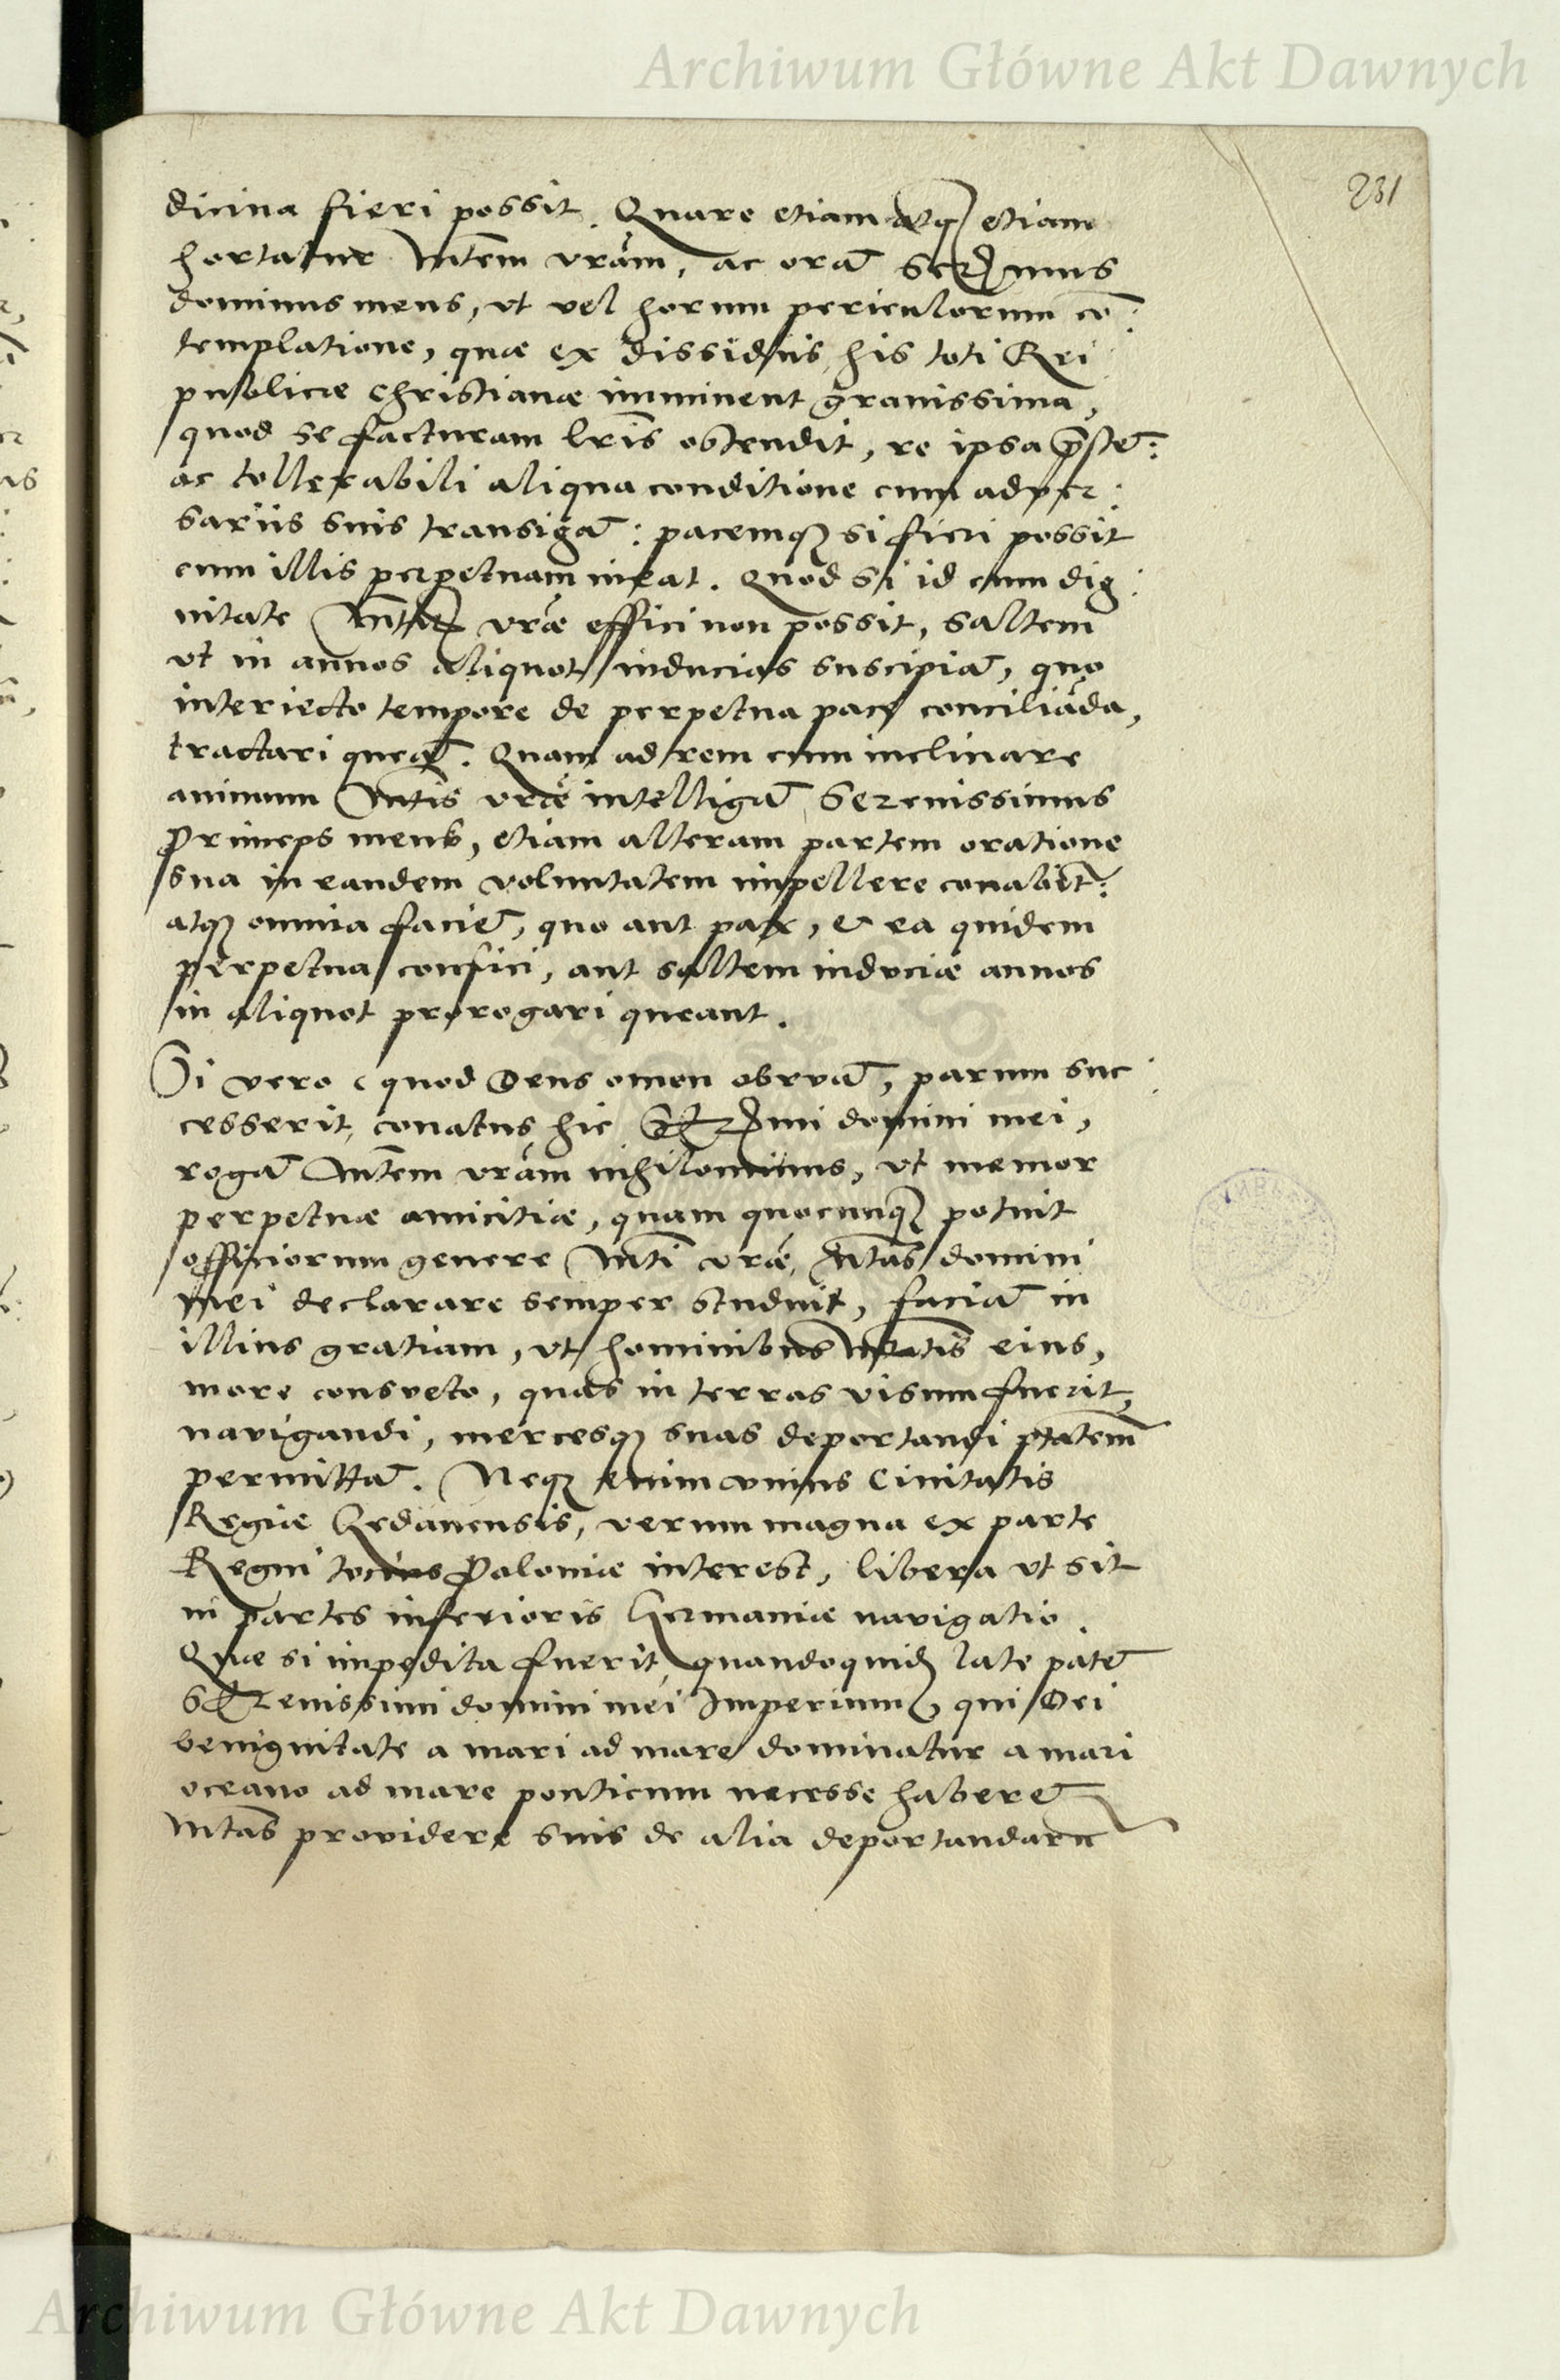 Archiwum Główne Akt Dawnych
231
dicina fieri possit. Quare etiam atq₃ etiam
hortatur Mtem vram, ac orat̄ Sermus
dominus meus, vt vel horum periculorum cō:
templatione, quæ ex dissidiis his toti Rei
publicæ Christianæ imminent grauissima,
quod se facturam lris ostendit, re ipsa p̄stet̄:
ac tollerabili aliqua conditione cum aduer:
sariis suis transigat̄: pacemq₃ si fieri possit
cum illis perpetuam ineat. Quod si id cum dig:
nitate Mtis vræ effici non possit, saltem
vt in annos aliquot inducias suscipiat̄, quo
interiecto tempore de perpetua pace conciliāda,
tractari queat̄. Quam ad rem cum inclinare
animum Mtis vræ intelligat̄ Serenissimus
Princeps meus, etiam alteram partem oratione
sua in eandem voluntatem impellere conabit̄:
atq₃ omnia faciet̄, quo aut pax, & ea quidem
perpetua confici, aut saltem induciæ annos
in aliquot prorogari queant.
Si vero (quod Deus omen obruat̄, parum suc:
cesserit, conatus hic Sermi domini mei,
rogat̄ Mtem vram nihilominus, vt memor
perpetuæ amicitiæ, quam quocunq₃ potuit
officiorum genere Mti vræ, Mtas domini
mei declarare semper studuit, faciat̄ in
illius gratiam, vt hominibus Mtatis eius,
more consueto, quas in terras visum fuerit,
navigandi, mercesq₃ suas deportandi ptatem
permittat̄. Neq₃ enim vnius Ciuitatis
Regiæ Gedanensis, verum magna ex parte
Regni tocius Poloniæ interest, libera vt sit
in partes inferioris Germaniæ navigatio.
Quæ si impedita fuerit, quandoquidē late patet̄
Serenissimi domini mei Imperium, qui Dei
benignitate a mari ad mare dominatur a mari
oceano ad mare ponticum necesse haberet̄
Mtas providere suis de alia deportandarū
Archiwum Główne Akt Dawnych